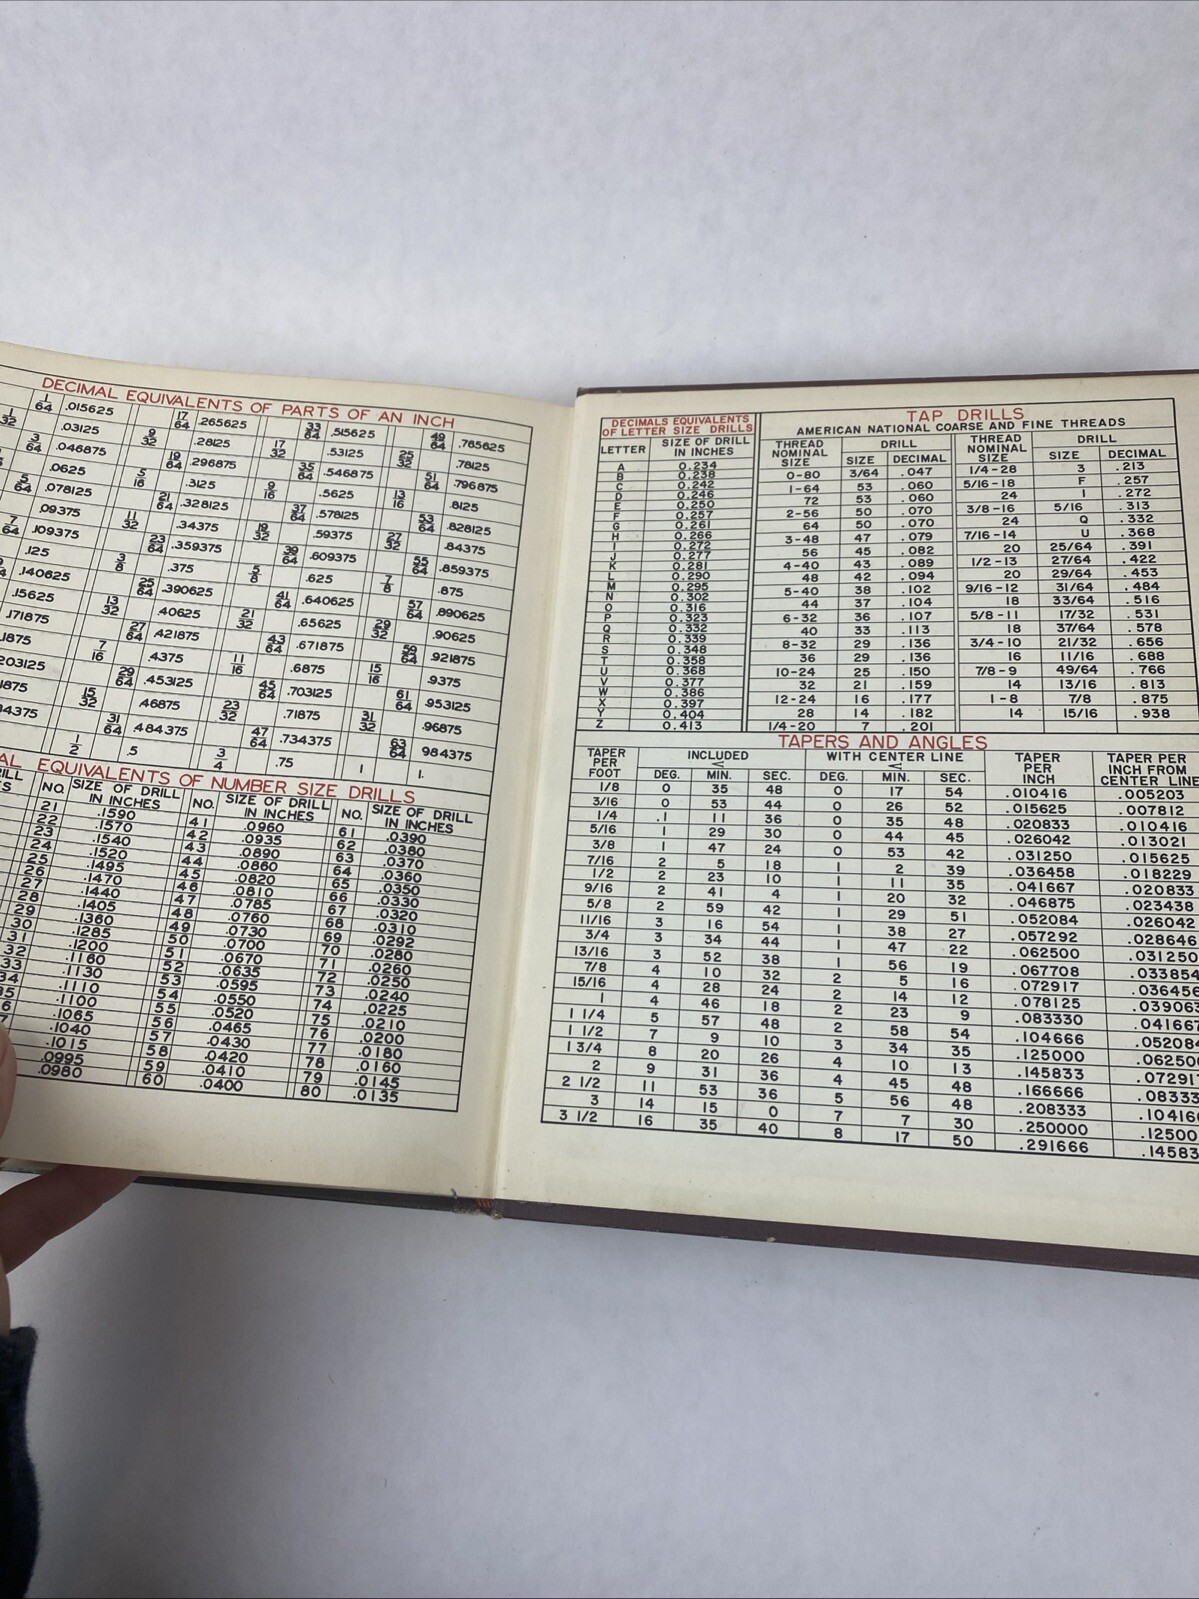 DECIMAL EQUIVALENTS OF PARTS OF AN INCH
1/64 .015625 17/64 .265625 33/64 .515625 49/64 .765625
1/32 .03125 9/32 .28125 17/32 .53125 25/32 .78125
3/64 .046875 19/64 .296875 35/64 .546875 51/64 .796875
.0625 5/16 .3125 9/16 .5625 13/16 .8125
5/64 .078125 21/64 .328125 37/64 .578125 53/64 .828125
.09375 11/32 .34375 19/32 .59375 27/32 .84375
7/64 .109375 23/64 .359375 39/64 .609375 55/64 .859375
.125 3/8 .375 5/8 .625 7/8 .875
.140625 25/64 .390625 41/64 .640625 57/64 .890625
.15625 13/32 .40625 21/32 .65625 29/32 .90625
.171875 27/64 .421875 43/64 .671875 59/64 .921875
.1875 7/16 .4375 11/16 .6875 15/16 .9375
203125 29/64 .453125 45/64 .703125 61/64 .953125
1875 15/32 .46875 23/32 .71875 31/32 .96875
34375 31/64 .484375 47/64 .734375 63/64 984375
1/2 .5 3/4 .75 1 1.
AL EQUIVALENTS OF NUMBER SIZE DRILLS
NO. SIZE OF DRILL NO. SIZE OF DRILL NO. SIZE OF DRILL
IN INCHES IN INCHES IN INCHES
21 .1590 41 .0960 61 .0390
22 .1570 42 .0935 62 .0380
23 .1540 43 .0890 63 .0370
24 .1520 44 .0860 64 .0360
25 .1495 45 .0820 65 .0350
26 .1470 46 .0810 66 .0330
27 .1440 47 .0785 67 .0320
28 .1405 48 .0760 68 .0310
29 .1360 49 .0730 69 .0292
30 .1285 50 .0700 70 .0280
31 .1200 51 .0670 71 .0260
32 .1160 52 .0635 72 .0250
33 .1130 53 .0595 73 .0240
34 .1110 54 .0550 74 .0225
35 .1100 55 .0520 75 .0210
6 .1065 56 .0465 76 .0200
7 .1040 57 .0430 77 .0180
.1015 58 .0420 78 .0160
.0995 59 .0410 79 .0145
.0980 60 .0400 80 .0135
DECIMALS EQUIVALENTS
OF LETTER SIZE DRILLS
LETTER SIZE OF DRILL
IN INCHES
A 0.234
B 0.238
C 0.242
D 0.246
E 0.250
F 0.257
G 0.261
H 0.266
I 0.272
J 0.277
K 0.281
L 0.290
M 0.295
N 0.302
O 0.316
P 0.323
Q 0.332
R 0.339
S 0.348
T 0.358
U 0.368
V 0.377
W 0.386
X 0.397
Y 0.404
Z 0.413
TAP DRILLS
AMERICAN NATIONAL COARSE AND FINE THREADS
THREAD NOMINAL SIZE DRILL THREAD NOMINAL SIZE DRILL
SIZE DECIMAL SIZE DECIMAL
0-80 3/64 .047 1/4-28 3 .213
1-64 53 .060 5/16-18 F .257
72 53 .060 24 I .272
2-56 50 .070 3/8-16 5/16 .313
64 50 .070 24 Q .332
3-48 47 .079 7/16-14 U .368
56 45 .082 20 25/64 .391
4-40 43 .089 1/2-13 27/64 .422
48 42 .094 20 29/64 .453
5-40 38 .102 9/16-12 31/64 .484
44 37 .104 18 33/64 .516
6-32 36 .107 5/8-11 17/32 .531
40 33 .113 18 37/64 .578
8-32 29 .136 3/4-10 21/32 .656
36 29 .136 16 11/16 .688
10-24 25 .150 7/8-9 49/64 .766
32 21 .159 14 13/16 .813
12-24 16 .177 1-8 7/8 .875
28 14 .182 14 15/16 .938
1/4-20 7 .201
TAPERS AND ANGLES
TAPER PER FOOT INCLUDED < WITH CENTER LINE < TAPER PER INCH TAPER PER INCH FROM CENTER LINE
DEG. MIN. SEC. DEG. MIN. SEC.
1/8 0 35 48 0 17 54 .010416 .005203
3/16 0 53 44 0 26 52 .015625 .007812
1/4 .1 11 36 0 35 48 .020833 .010416
5/16 1 29 30 0 44 45 .026042 .013021
3/8 1 47 24 0 53 42 .031250 .015625
7/16 2 5 18 1 2 39 .036458 .018229
1/2 2 23 10 1 11 35 .041667 .020833
9/16 2 41 4 1 20 32 .046875 .023438
5/8 2 59 42 1 29 51 .052084 .026042
11/16 3 16 54 1 38 27 .057292 .028646
3/4 3 34 44 1 47 22 .062500 .031250
13/16 3 52 38 1 56 19 .067708 .033854
7/8 4 10 32 2 5 16 .072917 .036456
15/16 4 28 24 2 14 12 .078125 .039063
1 4 46 18 2 23 9 .083330 .041667
1 1/4 5 57 48 2 58 54 .104666 .052084
1 1/2 7 9 10 3 34 35 .125000 .06250
1 3/4 8 20 26 4 10 13 .145833 .07291
2 9 31 36 4 45 48 .166666 .08333
2 1/2 11 53 36 5 56 48 .208333 .10416
3 14 15 0 7 7 30 .250000 .12500
3 1/2 16 35 40 8 17 50 .291666 .14583